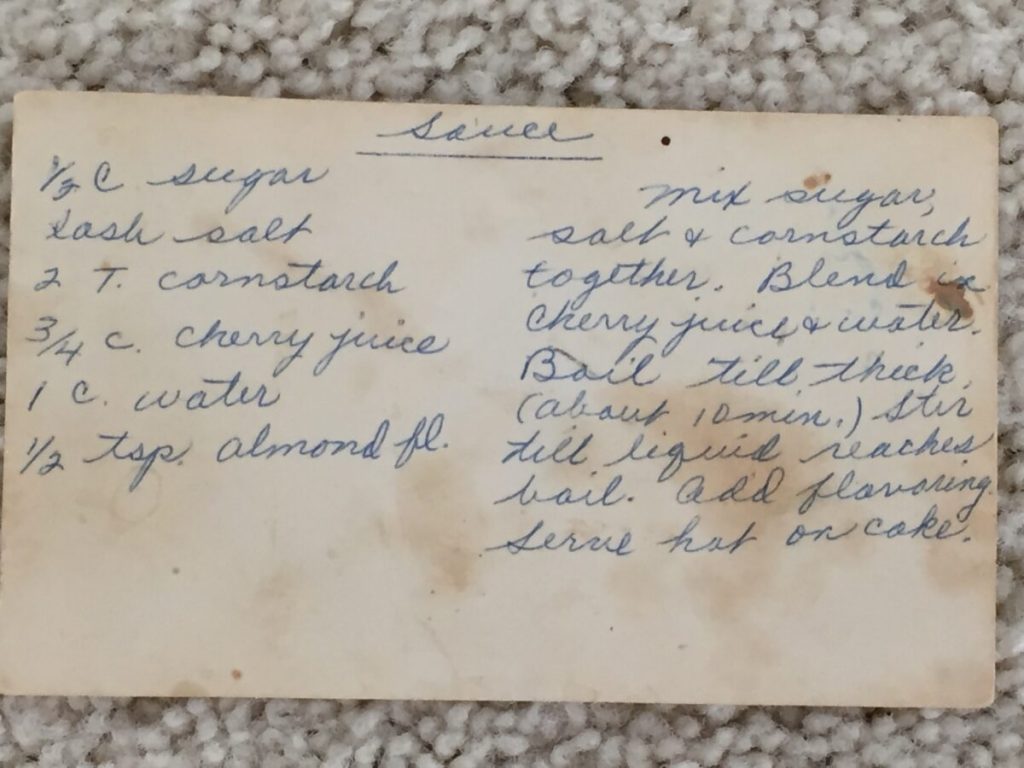 Sauce
1/2 C sugar
Dash salt
2 T. cornstarch
3/4 c. cherry juice
1 c. water
1/2 tsp. almond fl.
Mix sugar,
salt & cornstarch
together. Blend in
cherry juice & water.
Boil till thick.
(about 10 min.) Stir
till liquid reaches
boil. Add flavoring.
Serve hot on cake.